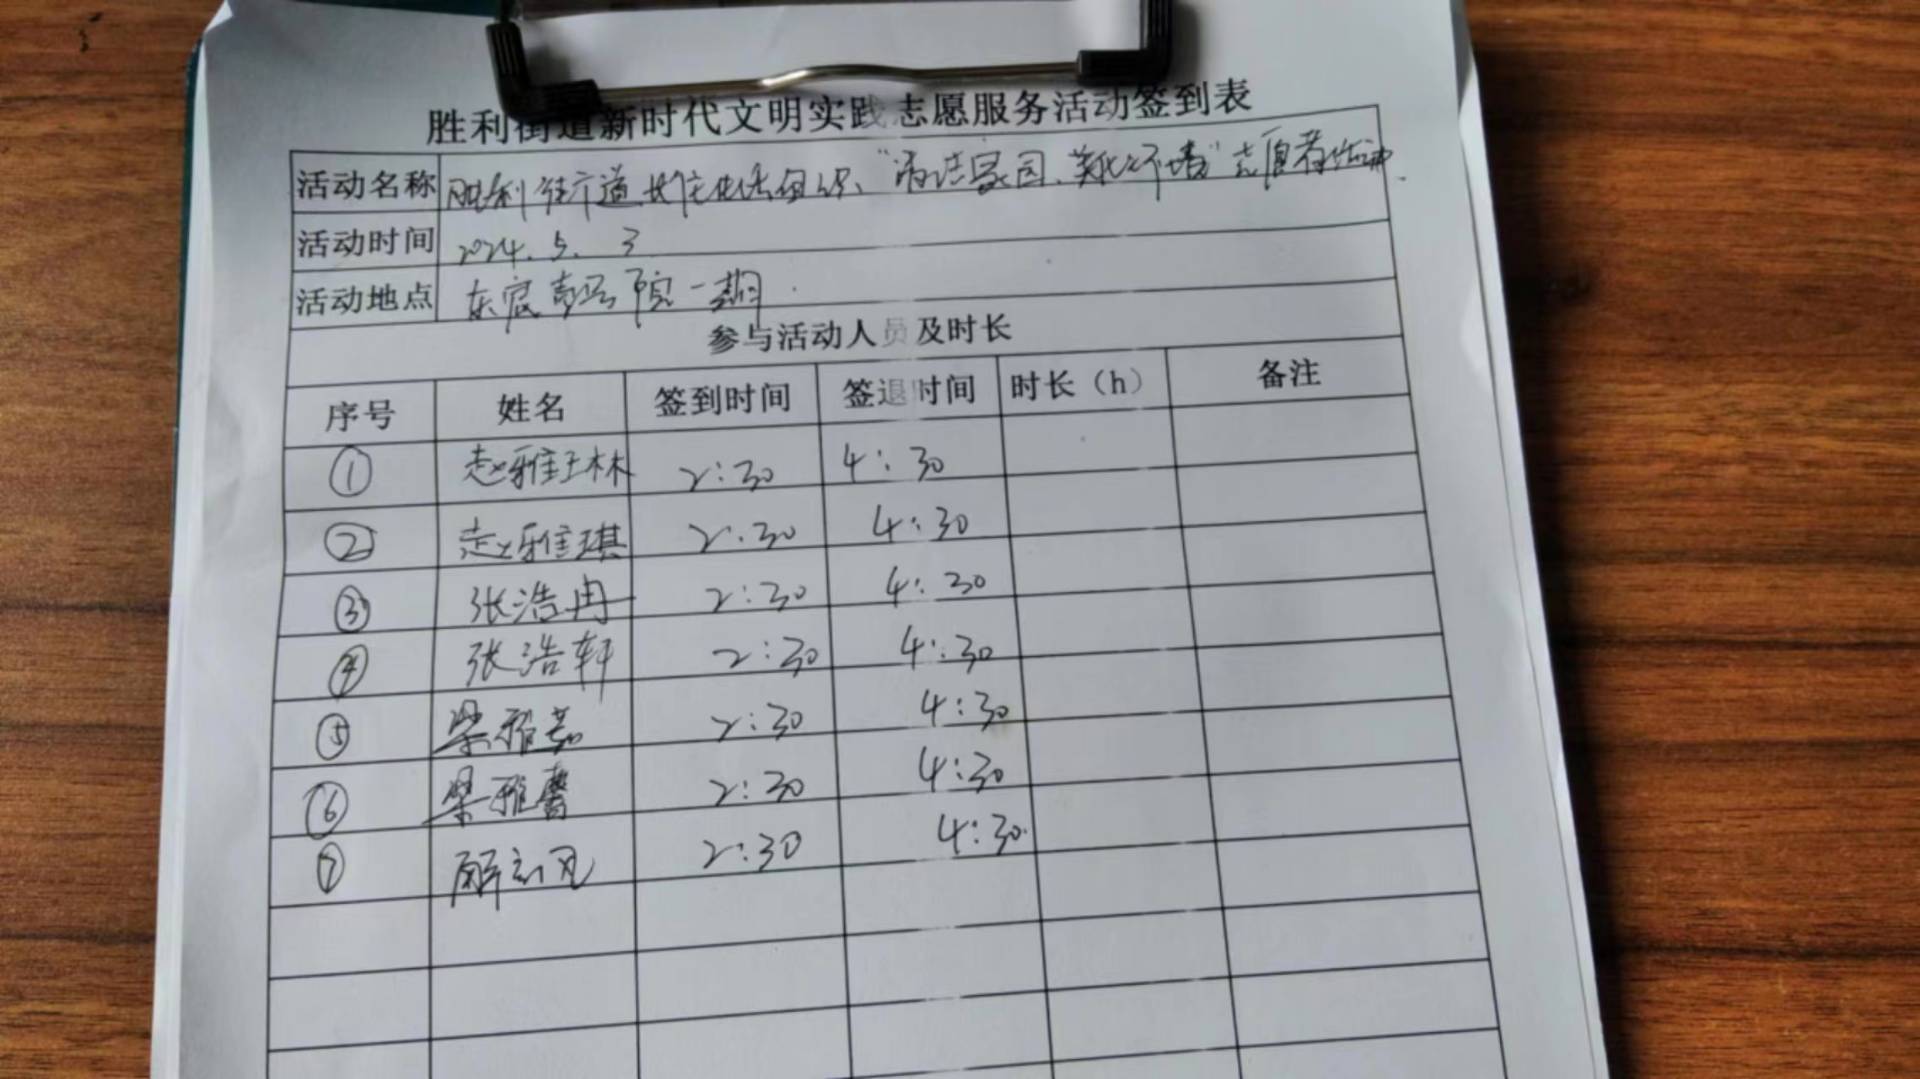 胜利街道新时代文明实践志愿服务活动签到表
活动名称 胜利街道 组织“清洁家园、美化环境”志愿者活动.
活动时间 2024.5.3
活动地点 东宸 院一期.
参与活动人员及时长
序号 姓名 签到时间 签退时间 时长（h） 备注
① 赵雅琳 2:30 4:30
② 赵雅琪 2:30 4:30
③ 张浩冉 2:30 4:30
④ 张浩轩 2:30 4:30
⑤ 梁雅茹 2:30 4:30
⑥ 梁雅馨 2:30 4:30
⑦ 解 2:30 4:30